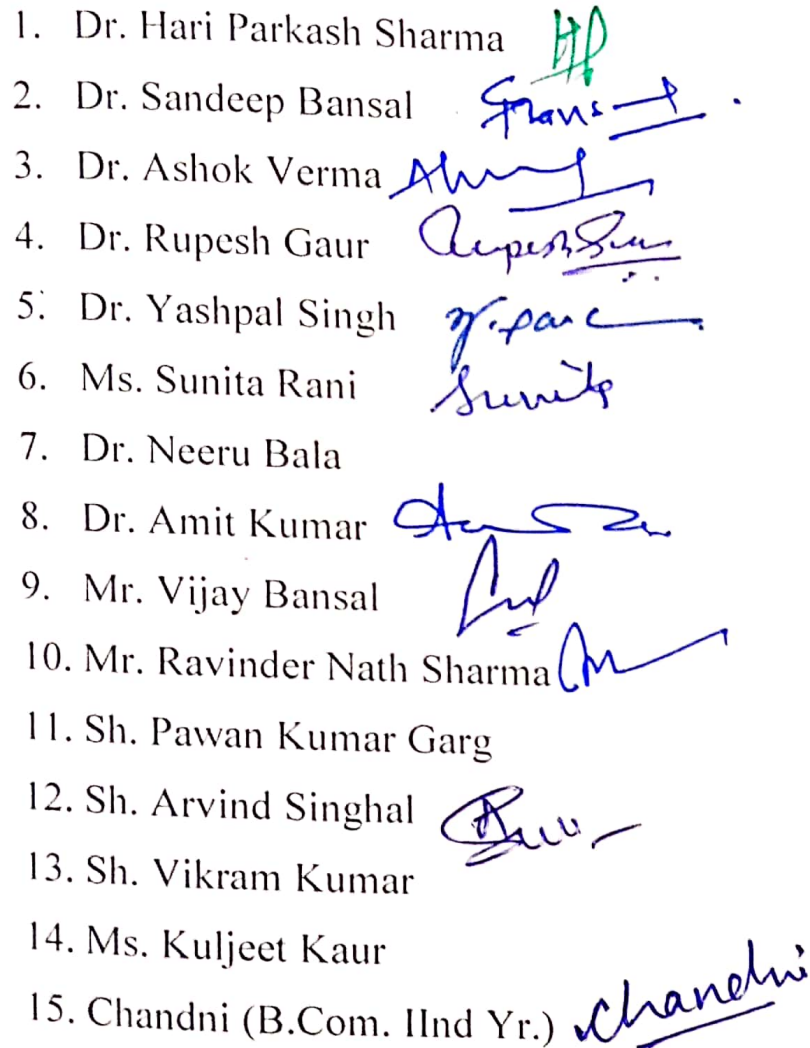 1. Dr. Hari Parkash Sharma HP
2. Dr. Sandeep Bansal
3. Dr. Ashok Verma
4. Dr. Rupesh Gaur
5. Dr. Yashpal Singh
6. Ms. Sunita Rani Sunita
7. Dr. Neeru Bala
8. Dr. Amit Kumar
9. Mr. Vijay Bansal
10. Mr. Ravinder Nath Sharma
11. Sh. Pawan Kumar Garg
12. Sh. Arvind Singhal
13. Sh. Vikram Kumar
14. Ms. Kuljeet Kaur
15. Chandni (B.Com. IInd Yr.) Chandni